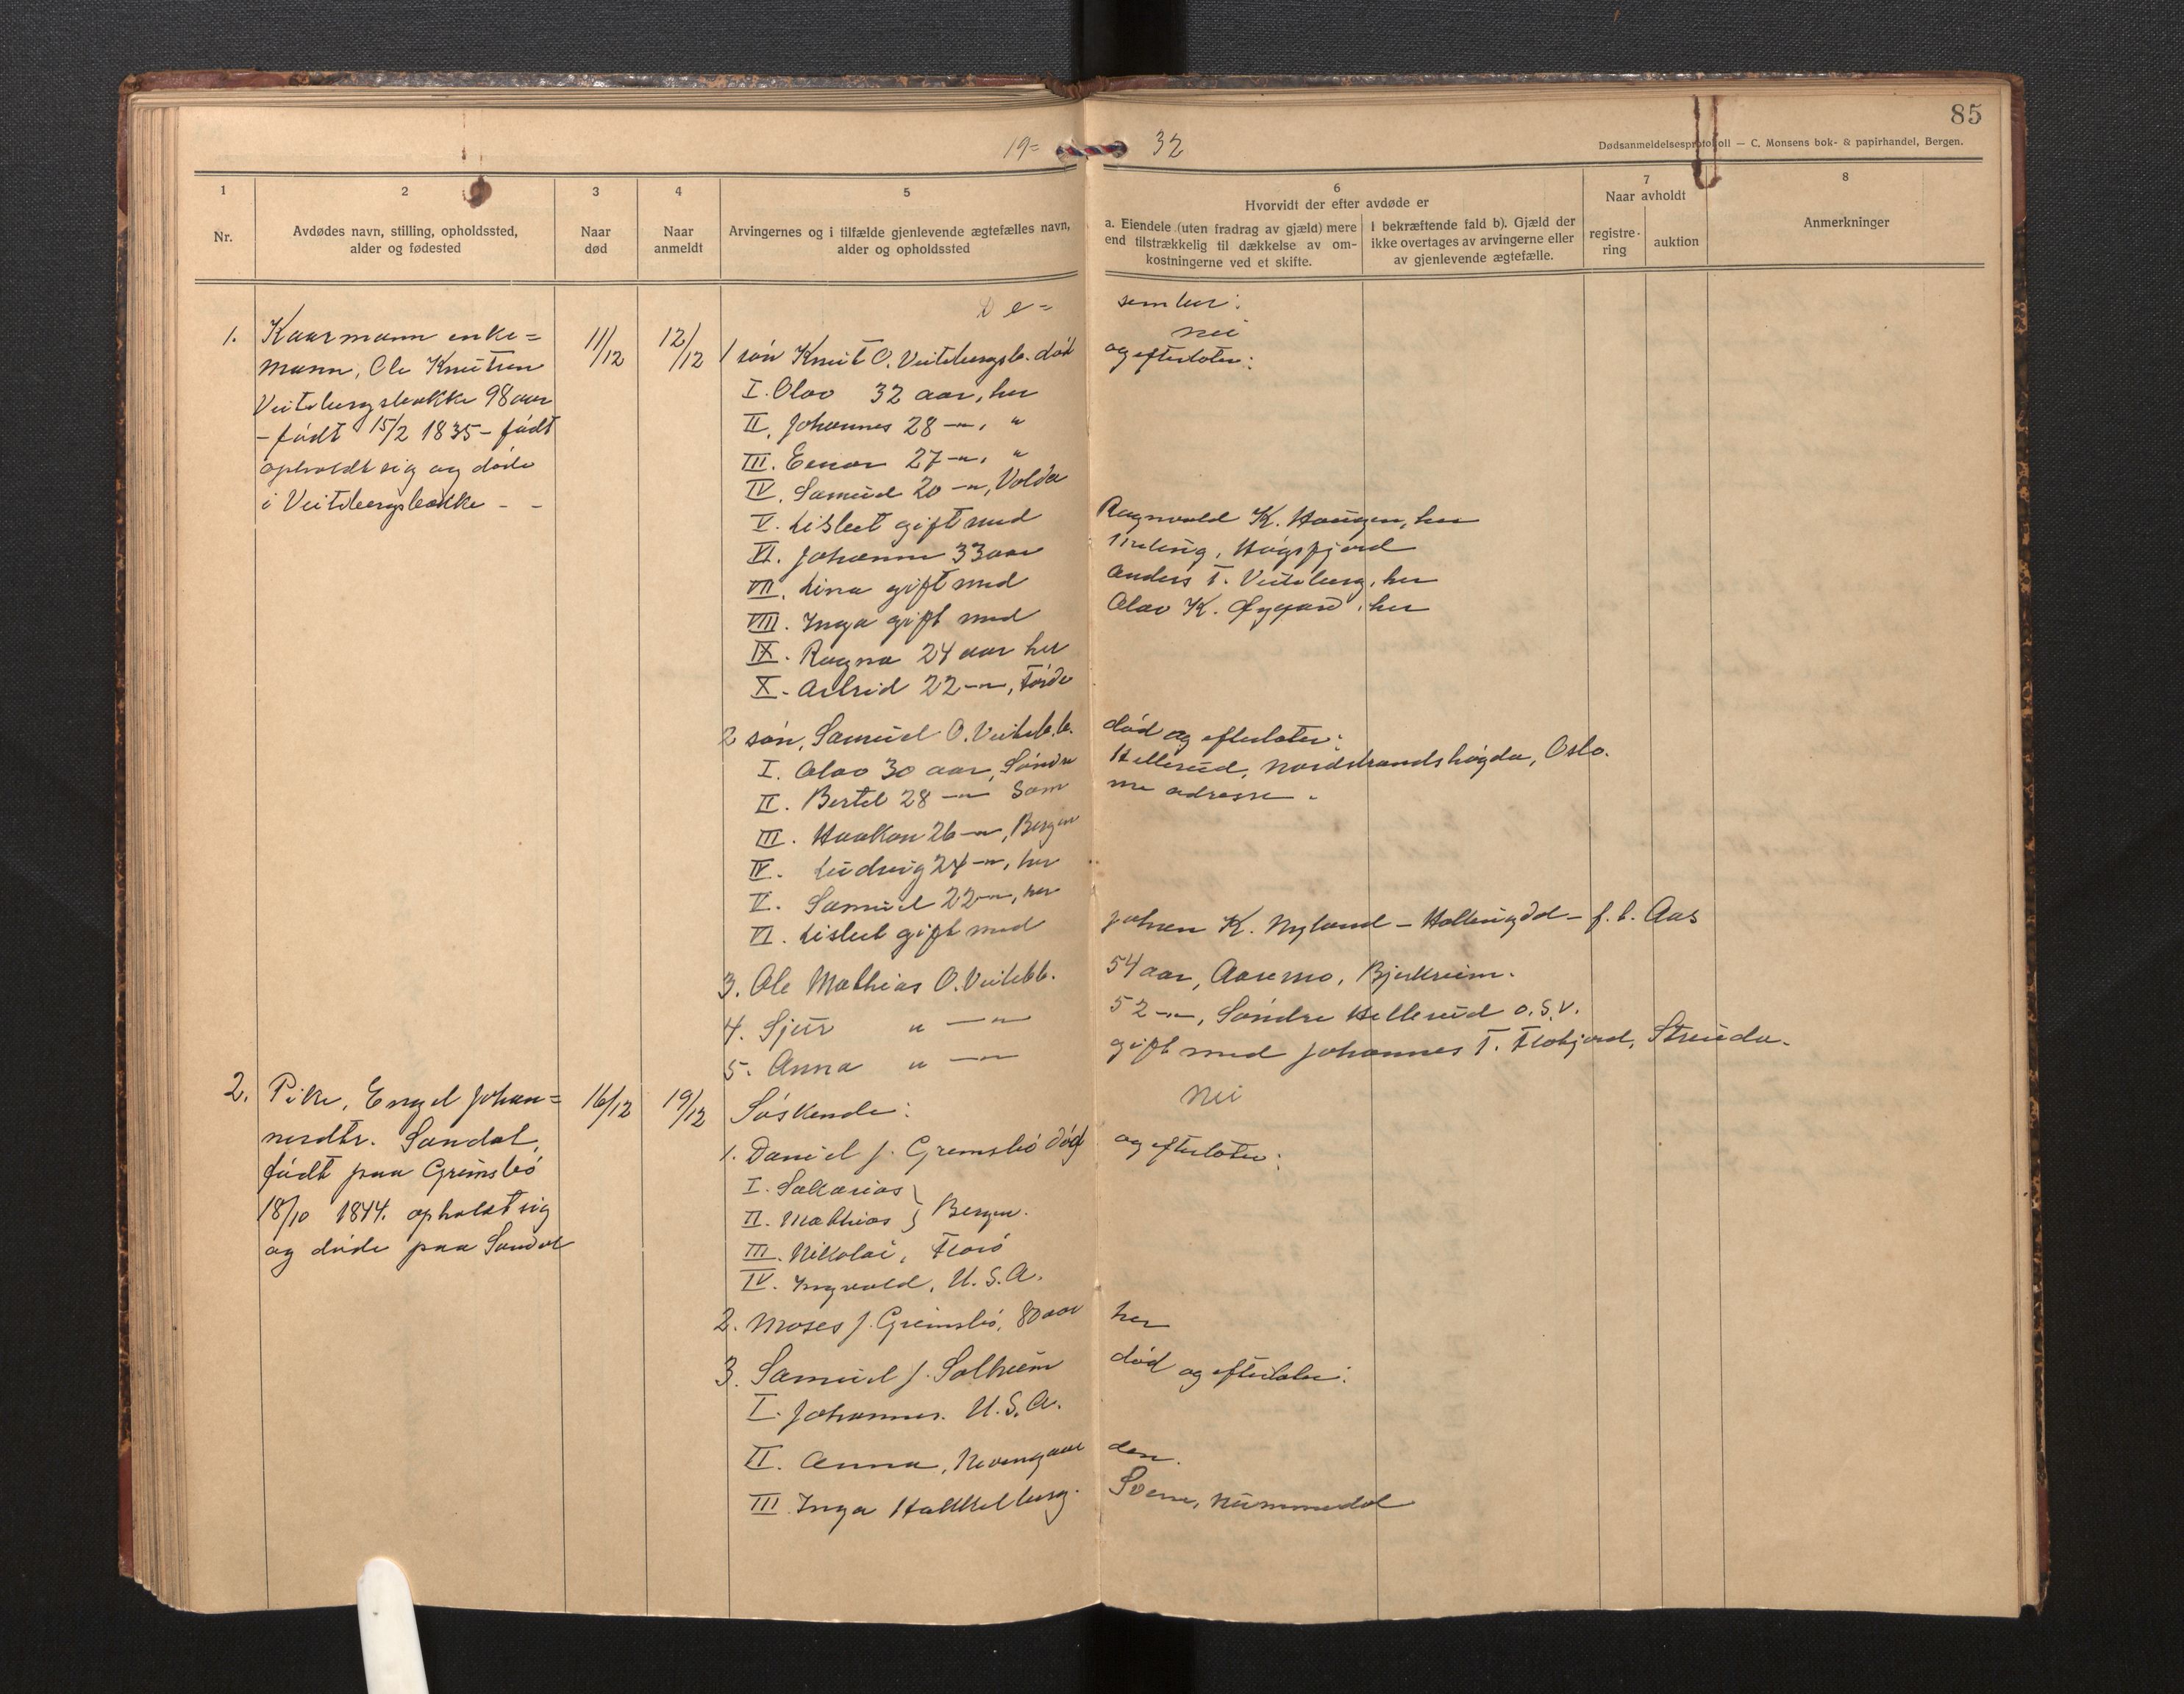 85
19= 32
Dødsanmeldelsesprotokoll — C. Monsens bok- & papirhandel, Bergen.
1 2 3 4 5 6 7 8
Nr.
Avdødes navn, stilling, opholdssted,
alder og fødested
Naar
død
Naar
anmeldt
Arvingernes og i tilfælde gjenlevende ægtefælles navn,
alder og opholdssted
Hvorvidt der efter avdøde er
a. Eiendele (uten fradrag av gjæld) mere
end tilstrækkelig til dækkelse av om-
kostningerne ved et skifte.
I bekræftende fald b). Gjæld der
ikke overtages av arvingerne eller
av gjenlevende ægtefælle.
Naar avholdt
registre-
ring
auktion
Anmerkninger
De= sember:
1. Kaarmann enke=
mann, Ole Knutsen
Veitebergsbakke 98 aar
- født 15/2 1835 - født
opholdt sig og døde
i Veitebergsbakke - -
11/12
12/12
nei
1 søn Knut O. Veitebergsb. død og efterlater:
I. Olav 32 aar, her
II. Johannes 28 -"-, "
III. Einar 27 -"-, "
IV. Samuel 20 -"-, Volda
V. Lisbet gift med Ragnvald K. Haugen, her
VI. Johanne 33 aar Høgsfjord
VII. Lina gift med Anders T. Veiteberg, her
VIII. Inga gift med Olav K. Øygard, her
IX. Ragna 24 aar her
X. Astrid 22 -"-, Førde
2 søn, Samuel O. Veiteb.b. død og efterlater:
I. Olav 30 aar, Søndre Hellerud, Nordstrandshøgda, Oslo.
II. Bertel 28 -"- Sam me adresse.
III. Haakon 26 -"-, Bergen
IV. Ludvig 24 -"-, her
V. Samuel 22 -"-, her
VI. Lisbet gift med Johan K. Nyland - Hallingdal - f. t. Aas
3. Ole Mathias O. Veitebb. 54 aar, Aasemo, Bjerkreim.
4. Sjur " -"- 52 -"-, Søndre Hellerud o.s.v.
5. Anna " -"- gift med Johannes T. Flotjord, Stranda.
2. Pike, Engel Johan=
nesdtr. Sandal,
født paa Grimsbø
18/10 1844. opholdt sig
og døde paa Sandal
16/12
19/12
Søskende: Nei
1. Daniel J. Grimsbø død og efterlater:
I. Sakarias
II. Mathias } Bergen.
III. Nikolai, Florø
IV. Ingvald, U.S.A.
2. Moses J. Grimsbø, 80 aar her
3. Samuel J. Solheim død og efterlater:
I. Johannes. U.S.A.
II. Anna, Hovengaar den.
III. Inga Svem, Nummedal